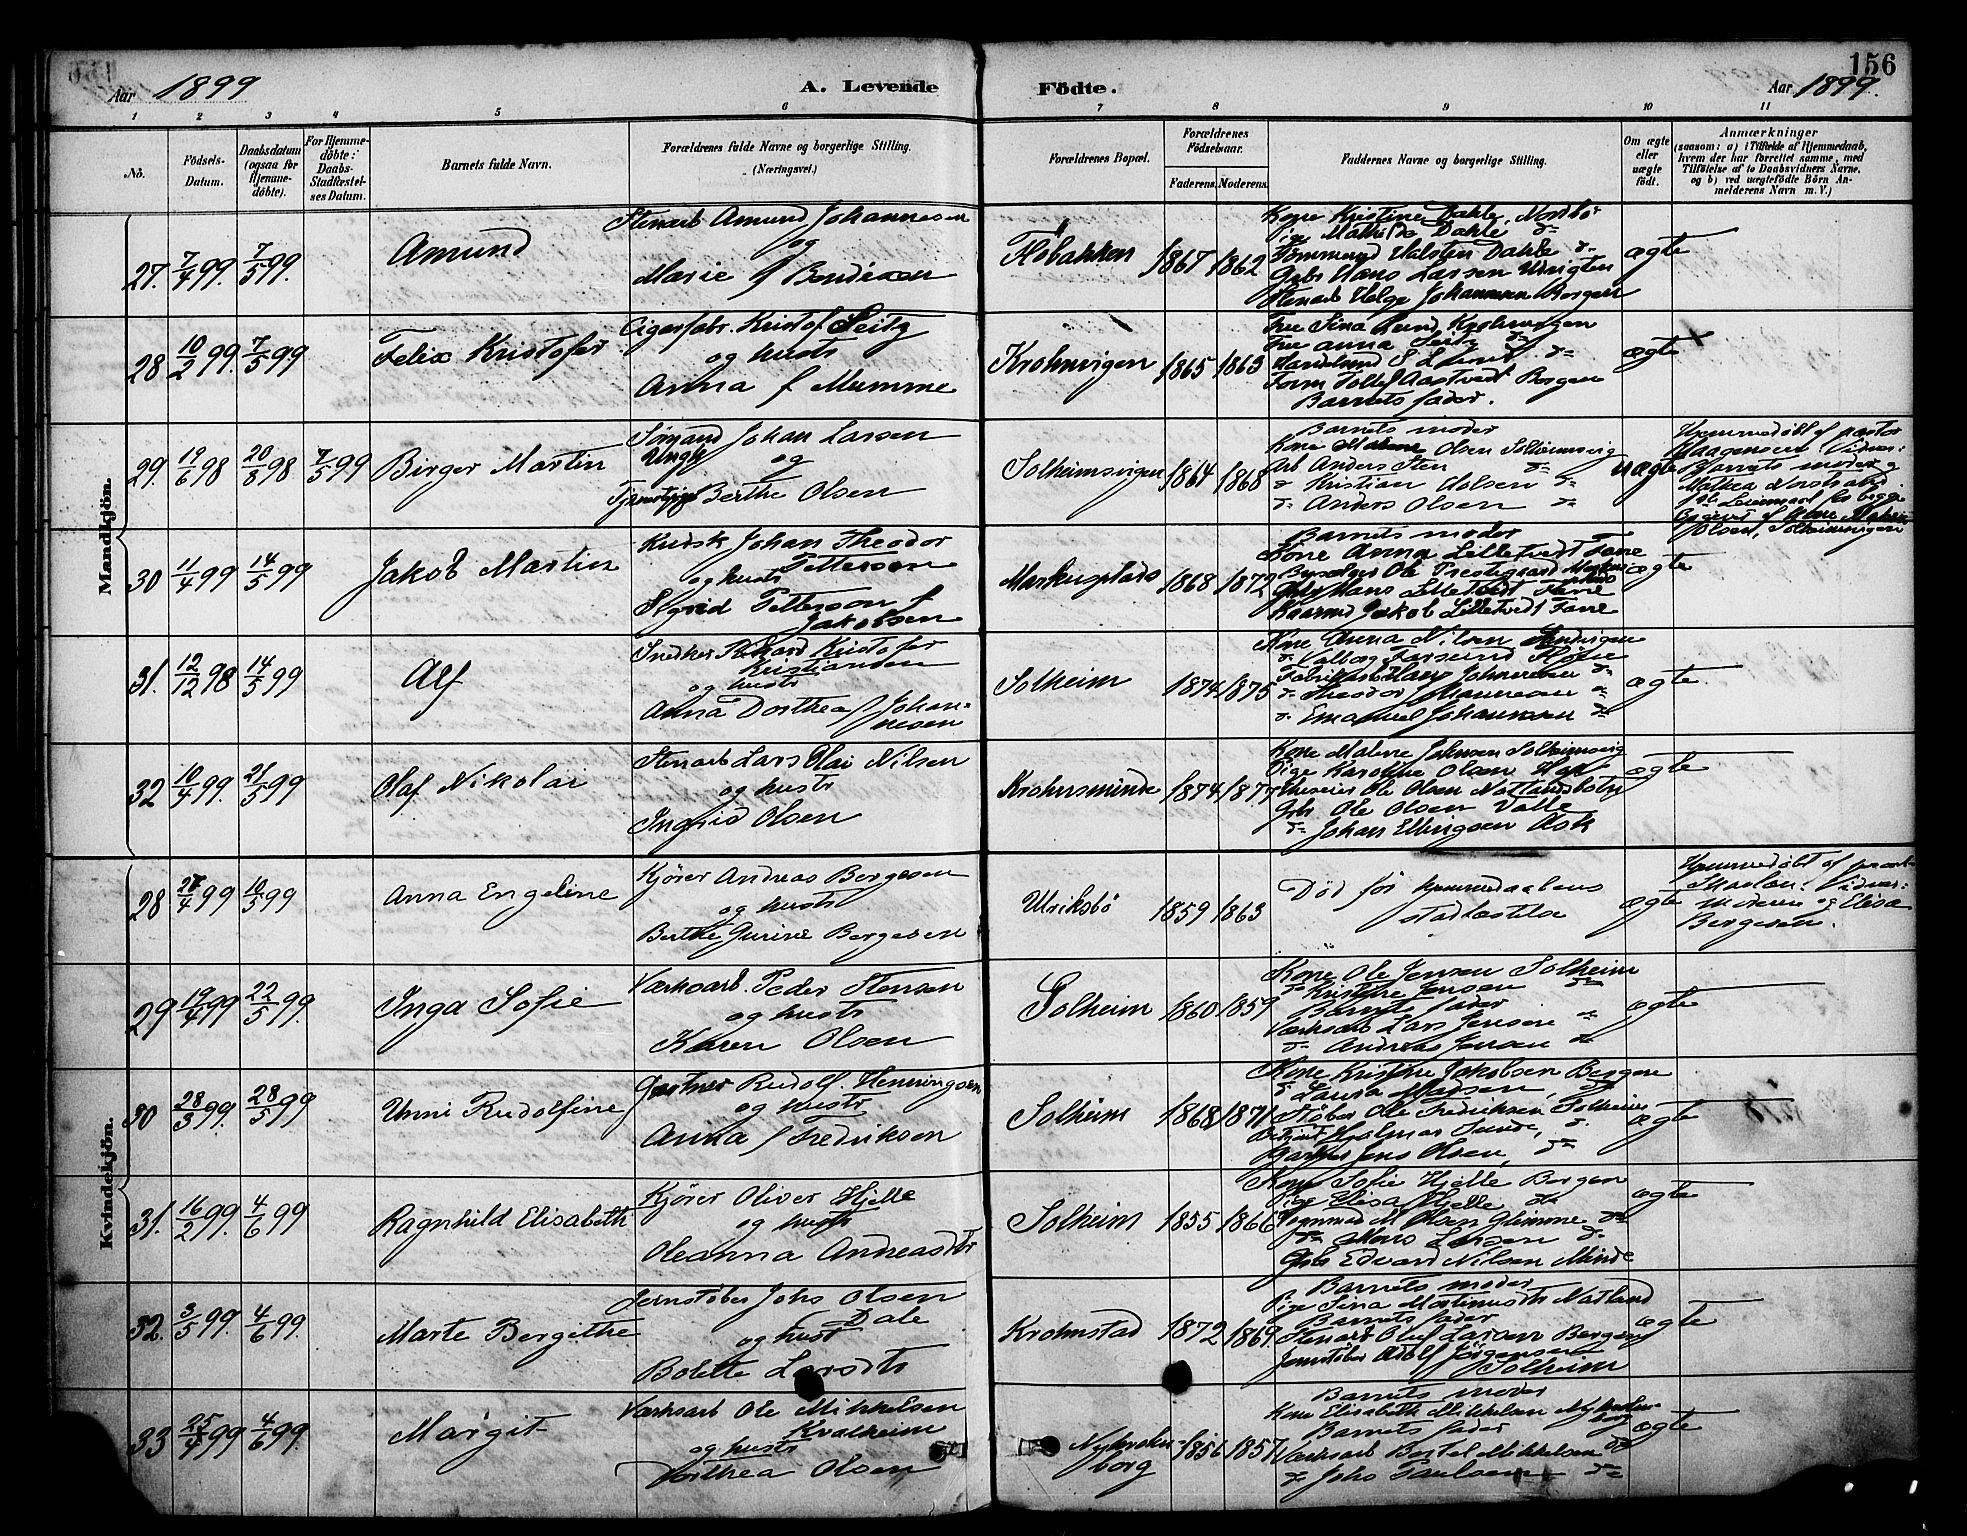 156
Aar 1899
A. Levende Födte.
Aar 1899.
1 2 3 4 5 6 7 8 9 10 11
No.
Födsels-Datum.
Daabsdatum (ogsaa for Hjemme-döbte).
For Hjemme-döbte: Daabs-Stadfæstel-ses Datum.
Barnets fulde Navn.
Forældrenes fulde Navne og borgerlige Stilling. (Næringsvei.)
Forældrenes Bopæl.
Forældrenes Födselsaar.
Faderens. Moderens.
Faddernes Navne og borgerlige Stilling.
Om ægte eller uægte födt.
Anmærkninger
(saasom: a) i Tilfælde af Hjemmedaab, hvem der har forrettet samme, med Tilföielse af to Daabsvidners Navne, og b) ved uægtefödte Börn An-melderens Navn m. V.)
Mandkjön.
27. 7/4 99. 7/5 99. Amund
Stenarb Amund Johannesen
og
Marie f Bendixen
Flöbakken 1867 1862
Kone Kristine Dahle, Nordbö
Pige Mathilde Dahle do
Tömmermd Halsten Dahle do
Gbr Hans Larsen Ulrigten
Stenarb Helge Johannesen Bergen
ægte
28 10/2 99. 7/5 99 Felix Kristofer
Cigarfabr. Kristof Seitz
og hustr
Anna f Mumme
Krohnvigen 1865 1863
Fru Sina Lund Krohnvigen
Fru Anna Seitz do
Handelsmd S Lund do
Form Tollef Aastvedt Bergen
Barnets fader.
ægte
29. 19/6 98 20/8 98 7/5 99 Birger Martin
Sömand Johan Larsen
Ungk og
Tjenestepige Berthe Olsen
Solheimsvigen 1864 1868
Barnets moder
Kone Malene Olsen Solheimsvig
Arb Anders Sten do
do Kristian Olsen do
do Anders Olsen do
uægte
Hjemmedöbt af pastor
Haagensen Vidner:
Barnets moder og
Mathea Nordstrand.
1ste Leiermaal for begge
Begjært af Kone Malene
Olsen, Solheimsvigen
30 11/4 99 14/5 99 Jakob Martin
Kudsk Johan Theodor
Pettersen
og hustr
Sigrid Petterson f
Jakobsen
Markusplads 1868 1872
Barnets moder
Kone Anna Lilletvedt Fane
Bysel Ole Prestegaard Markus
plads
Gbr Hans Lilletvedt Fane
Gaarmd Jakob Lilletvedt Fane
ægte
31. 12/12 98 14/5 99 Alf
Snedker Rikard Kristofer
Kristiansen
og hustr
Anna Dorthea f Johan-
nesen
Solheim 1874 1875
Kone Anna Nilsen
do Valborg
Fabrikarb Hans Johannesen do
do Theodor Johannesen do
do Emanuel Johannesen do
ægte
32 10/4 99. 21/5 99 Olaf Nikolai
Stenarb Lars Olai Nilsen
og hustr
Ingrid Olsen
Krohnsminde 1874 1877
Kone Malene Johnsen Solheimsvig
Pige Karoline Olsen
Ole Olsen Natlandsbotn
Gbr Ole Olsen Valle
do Johan Ellingsen Ask
ægte
Kvindekjön.
28 27/4 99 10/5 99 Anna Engeline
Kjörer Andreas Borgesen
og hustr
Berthe Gurine Borgesen
Ulriksbö 1859 1863
Död för hjemmedaabens
stadfæstelse
ægte
Hjemmedöbt af præst
Skarlan: Vidner:
moderen og Elisa
Bergesen.
29 19/4 99 22/5 99. Inga Sofie
Værksarb. Peder Stensen
og hustr
Karen Olsen
Solheim 1860 1859
Kone Ole Jensen Solheim
do Kristine Jensen do
Barnets fader
Værksarb Lars Jensen do
do Andreas Jensen do
ægte
30 28/3 99. 28/5 99 Unni Rudolfine
Gartner Rudolf Henningsen
og hustr
Anna f Fredriksen
Solheim 1868 1871
Kone Kristine Jakobsen Bergen
do Laura Madsen, do
Støber Ole Fredriksen Solheim
Betjent Hjalmar Sunde, do
Jens Olsen, do
ægte
31. 16/2 99. 4/6 99 Ragnhild Elisabeth
Kjörer Oliver Hjelle
og hustr
Oleanna Andreasdtr
Solheim 1855 1866
Kone Sofie Hjelle Bergen
Pige Elisa Hjelle do
Vognmd M Olsen Glimme do
do Mons Larsen do
Gbr Edvard Nilsen Minde
ægte
32. 3/5 99. 4/6 99. Marte Bergithe
Jernstöber Johs Olsen
Dale
og hustr
Bolette Larsdtr
Krohnstad 1872 1869.
Barnets moder
Pige Sina Martinusdtr Natland
Barnets fader
Stenarb Oluf Larsen Bergen
Jernstöber Adolf Jörgensen
Solheim
ægte
33 25/4 99 4/6 99. Margit
Værksarb Ole Mikkelsen
Kvalheim
og hustr
Dorthea Olsen
Nykrohn-
borg
1856 1857
Barnets moder
Kone Elisabeth Mikkelsen Nykrohn-
borg
Barnets fader
Værksarb Bertel Mikkelsen do
do Johs Paulsen do
ægte